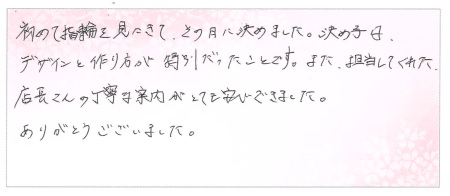 初めて指輪を見にきて、その月に決めました。決め手は、
デザインと作り方が特別だったことです。また、担当してくれた
店長さんの丁寧な案内がとても安心できました。
ありがとうございました。